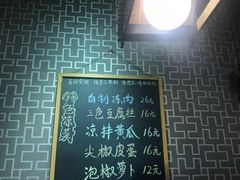 特色凉菜
自制冻肉 26元
三色豆腐丝 16元
凉拌黄瓜 16元
尖椒皮蛋 16元
泡椒萝卜 12元